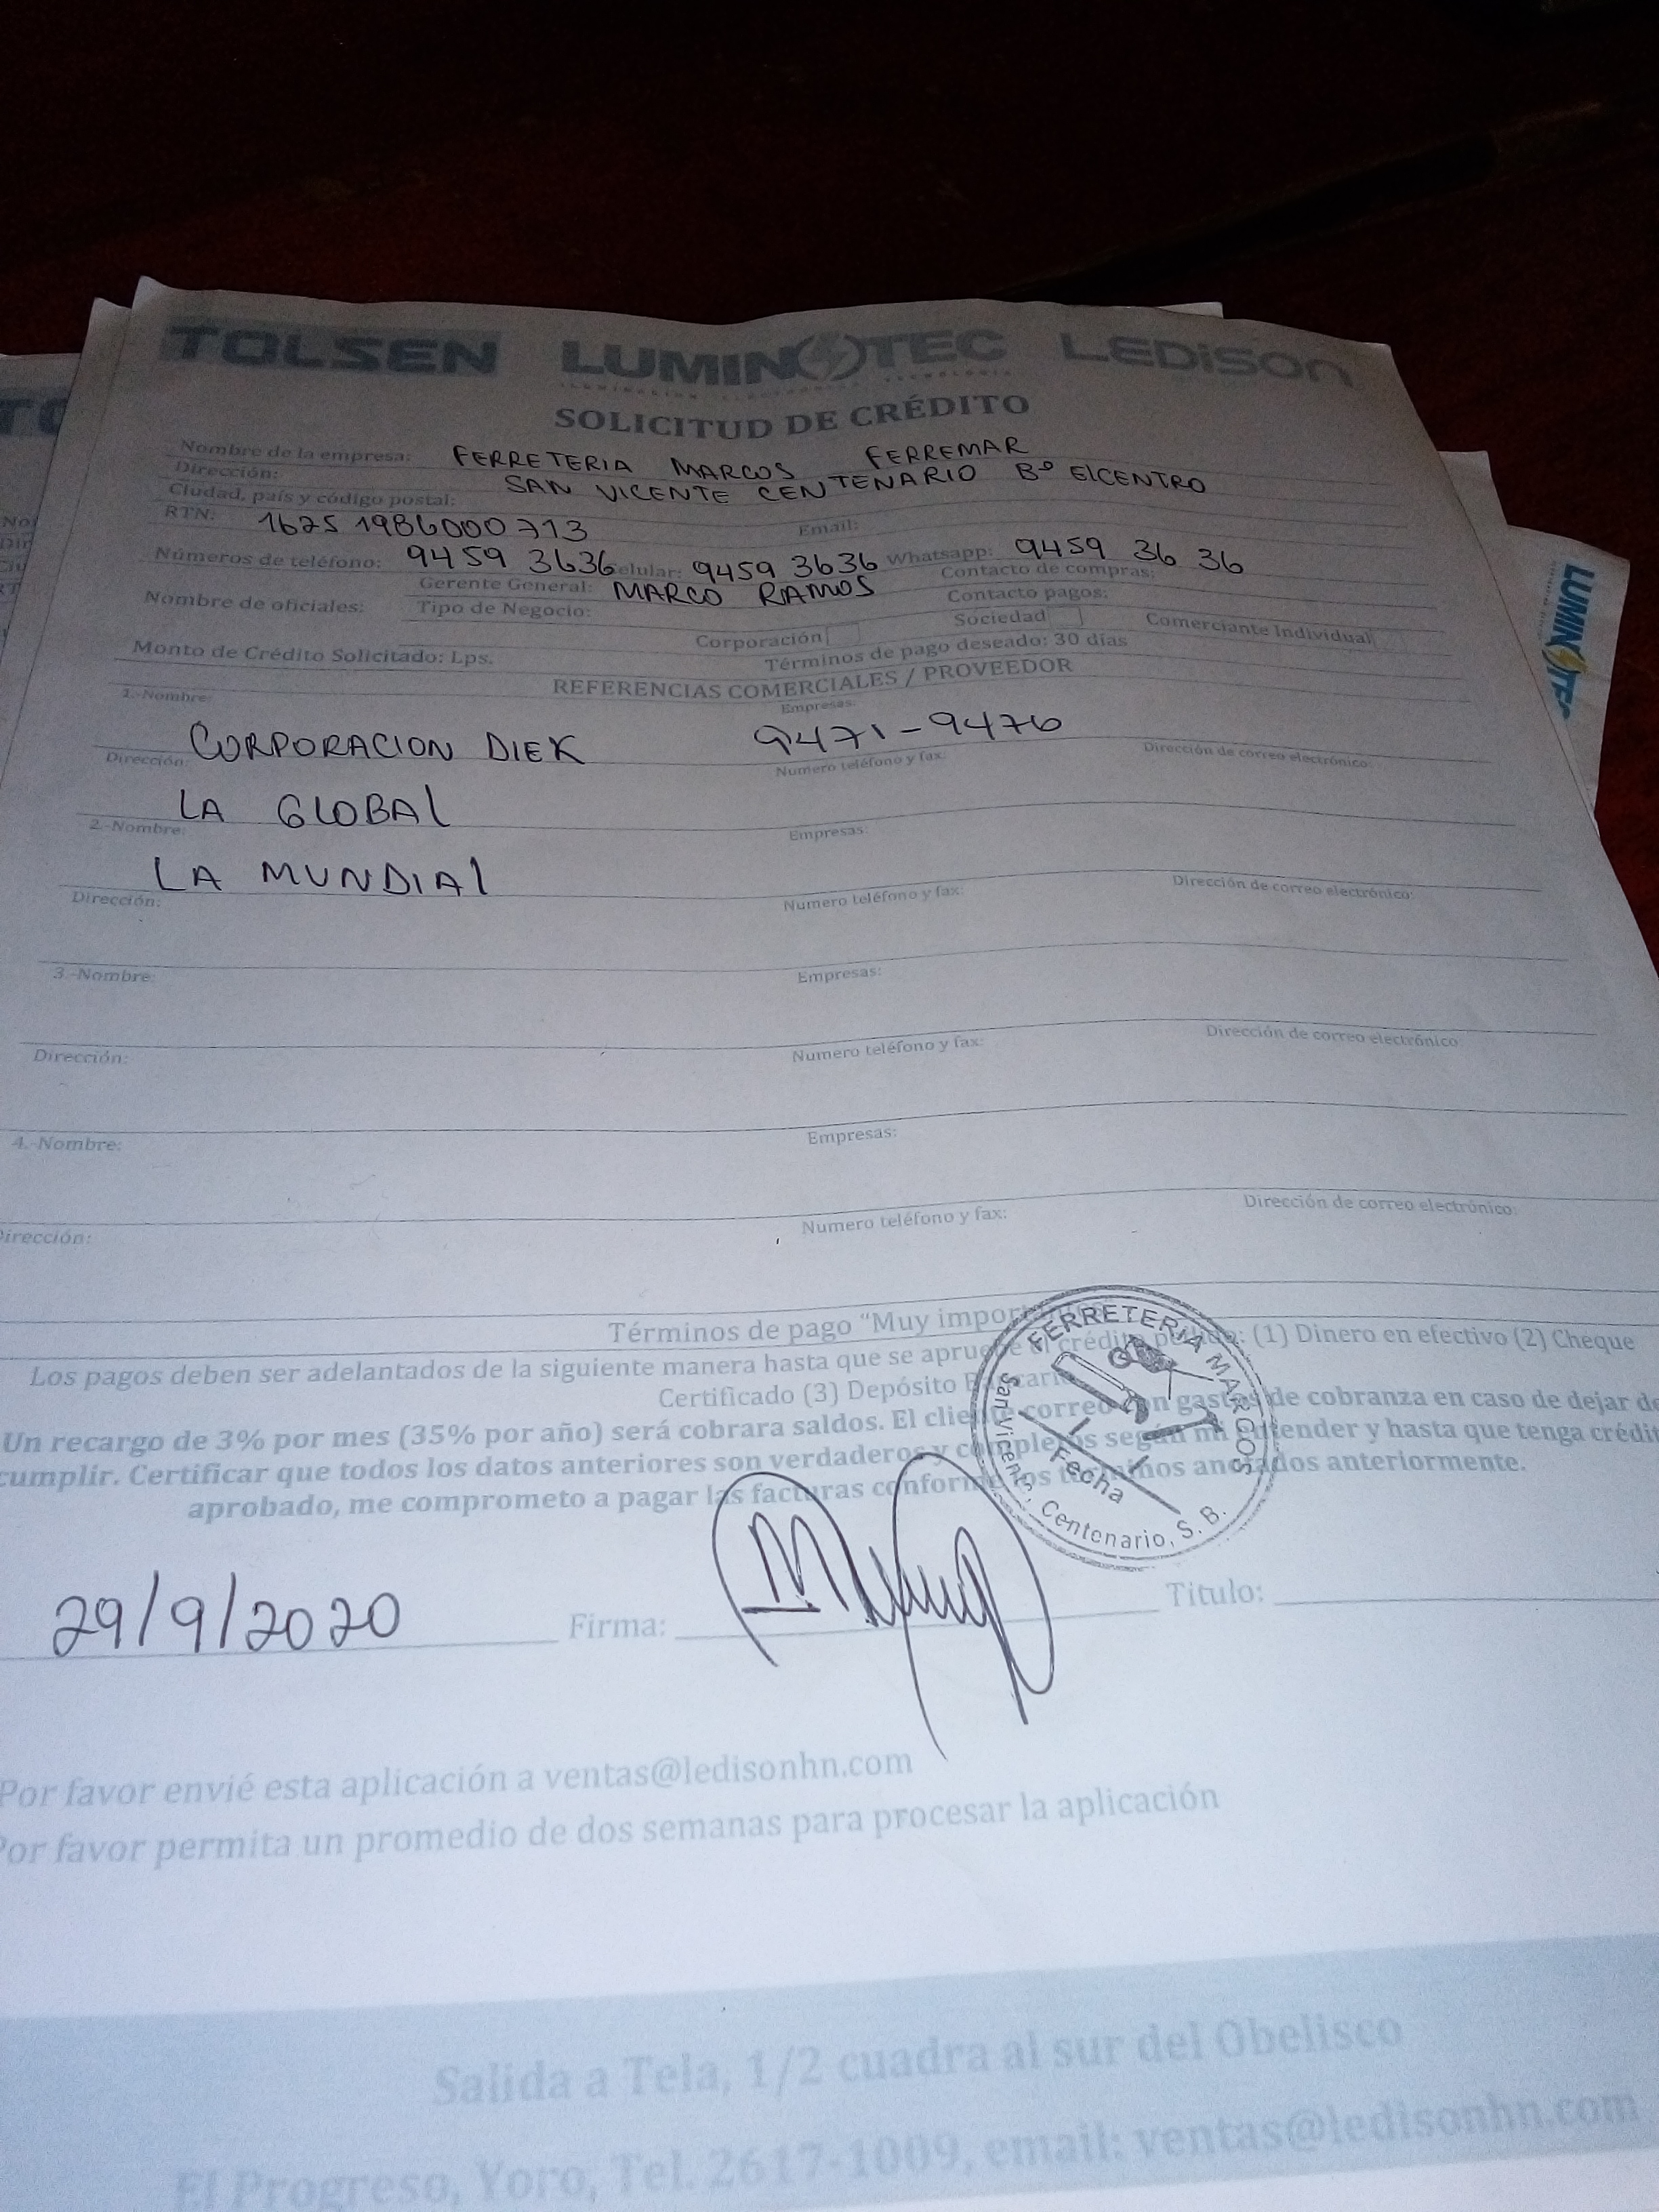 TOLSEN LUMINOTEC LEDISON
SOLICITUD DE CRÉDITO
Nombre de la empresa: FERRETERIA MARCOS FERREMAR
Dirección: SAN VICENTE CENTENARIO Bº ElCENTRO
Ciudad, país y código postal:
RTN: 16251986000713 Email:
Números de teléfono: 9459 3636 elular: 9459 3636 Whatsapp: 9459 36 36
Nombre de oficiales: Gerente General: MARCO RAMOS Contacto de compras:
Tipo de Negocio: Contacto pagos:
Corporación Sociedad Comerciante Individual
Monto de Crédito Solicitado: Lps. Términos de pago deseado: 30 días
REFERENCIAS COMERCIALES / PROVEEDOR
1.-Nombre: Empresas:
CORPORACION DIEK 9471-9476
Dirección: Numero teléfono y fax: Dirección de correo electrónico:
LA GLOBAl
2.-Nombre: Empresas:
LA MUNDIAl
Dirección: Numero teléfono y fax: Dirección de correo electrónico:
3.-Nombre: Empresas:
Dirección: Numero teléfono y fax: Dirección de correo electrónico
4.-Nombre: Empresas:
irección: Numero teléfono y fax: Dirección de correo electrónico:
Términos de pago "Muy import
Los pagos deben ser adelantados de la siguiente manera hasta que se apruebe el crédito : (1) Dinero en efectivo (2) Cheque
Certificado (3) Depósito Bancario
Un recargo de 3% por mes (35% por año) será cobrara saldos. El cliente corre con gastos de cobranza en caso de dejar de
cumplir. Certificar que todos los datos anteriores son verdaderos y completos según mi entender y hasta que tenga crédit
aprobado, me comprometo a pagar las facturas conforme los términos anotados anteriormente.
FERRETERIA MARCOS
Fecha
San Vicente, Centenario, S. B.
29/9/2020 Firma: Titulo:
Por favor envié esta aplicación a ventas@ledisonhn.com
Por favor permita un promedio de dos semanas para procesar la aplicación
Salida a Tela, 1/2 cuadra al sur del Obelisco
El Progreso, Yoro, Tel. 2617-1009, email: ventas@ledisonhn.com